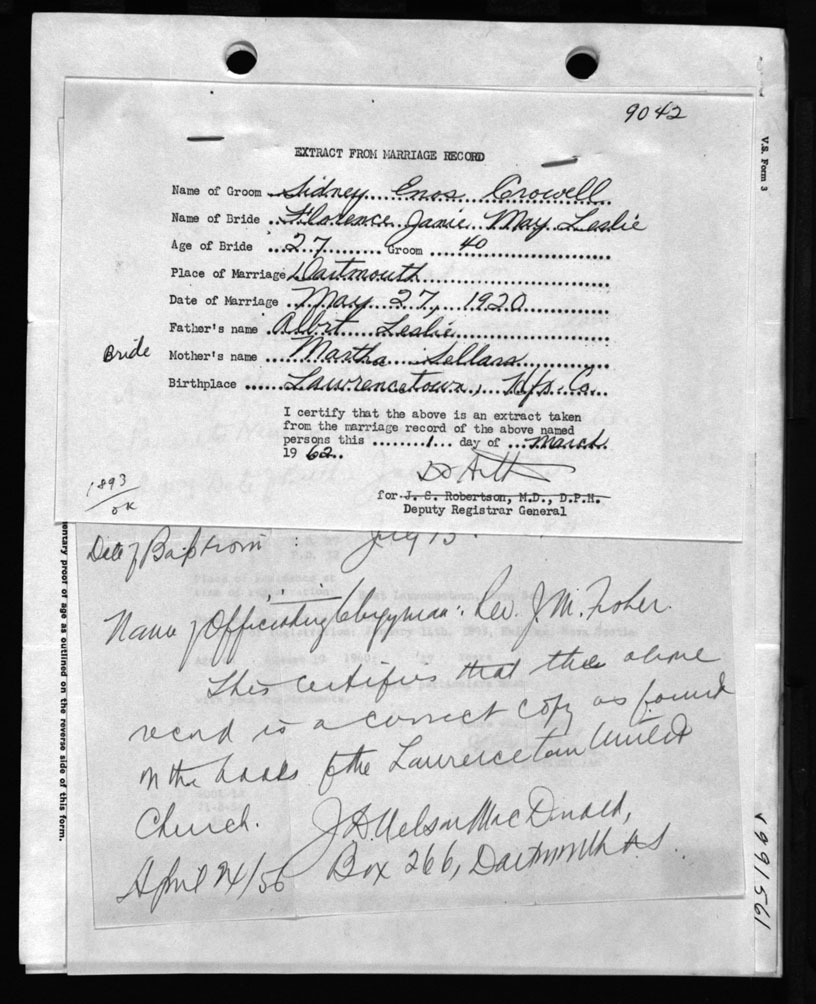 9042
V.S. Form 3
EXTRACT FROM MARRIAGE RECORD
Name of Groom Sidney Enos Crowell
Name of Bride Florence Janie May Leslie
Age of Bride 27 Groom 40
Place of Marriage Dartmouth
Date of Marriage May 27, 1920
Father's name Albert Leslie
Bride Mother's name Martha Sellars
Birthplace Lawrencetown, Hfx. Co.
I certify that the above is an extract taken
from the marriage record of the above named
persons this 1 day of March
19 62
1893
OK
for J. S. Robertson, M.D., D.P.H.
Deputy Registrar General
Date of Baptism : July 13
Name of Officiating Clergyman: Rev. J. M. Fisher.
This certifies that the above
record is a correct copy as found
in the books of the Lawrencetown United
Church. J A Nelson MacDonald,
April 24/56 Box 266, Dartmouth N.S.
mentary proof of age as outlined on the reverse side of this form.